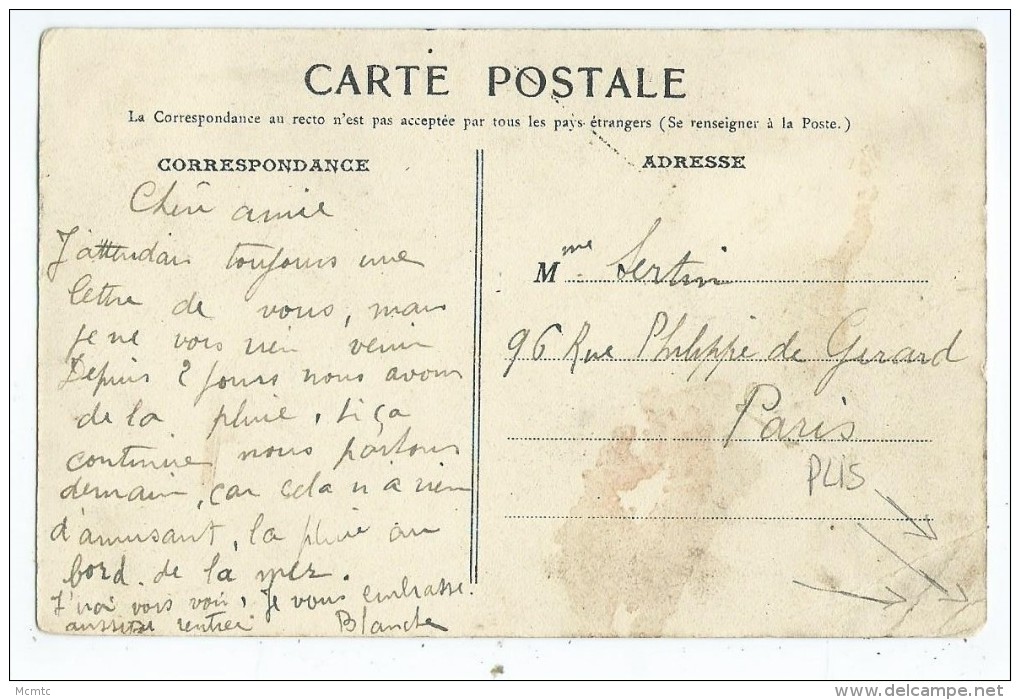 CARTE POSTALE
La Correspondance au recto n'est pas acceptée par tous les pays étrangers (Se renseigner à la Poste.)
CORRESPONDANCE
Chère amie
J'attendais toujours une
lettre de vous, mais
je ne vois rien venir
Depuis 2 jours nous avons
de la pluie, si ça
continue nous partons
demain, car cela n'a rien
d'amusant, la pluie au
bord de la mer.
J'irai vous voir, je vous embrasse.
aussitôt rentrée Blanche
ADRESSE
Mme Sertin
96 Rue Philippe de Girard
Paris
PLIS
Mcmtc
www.delcampe.net